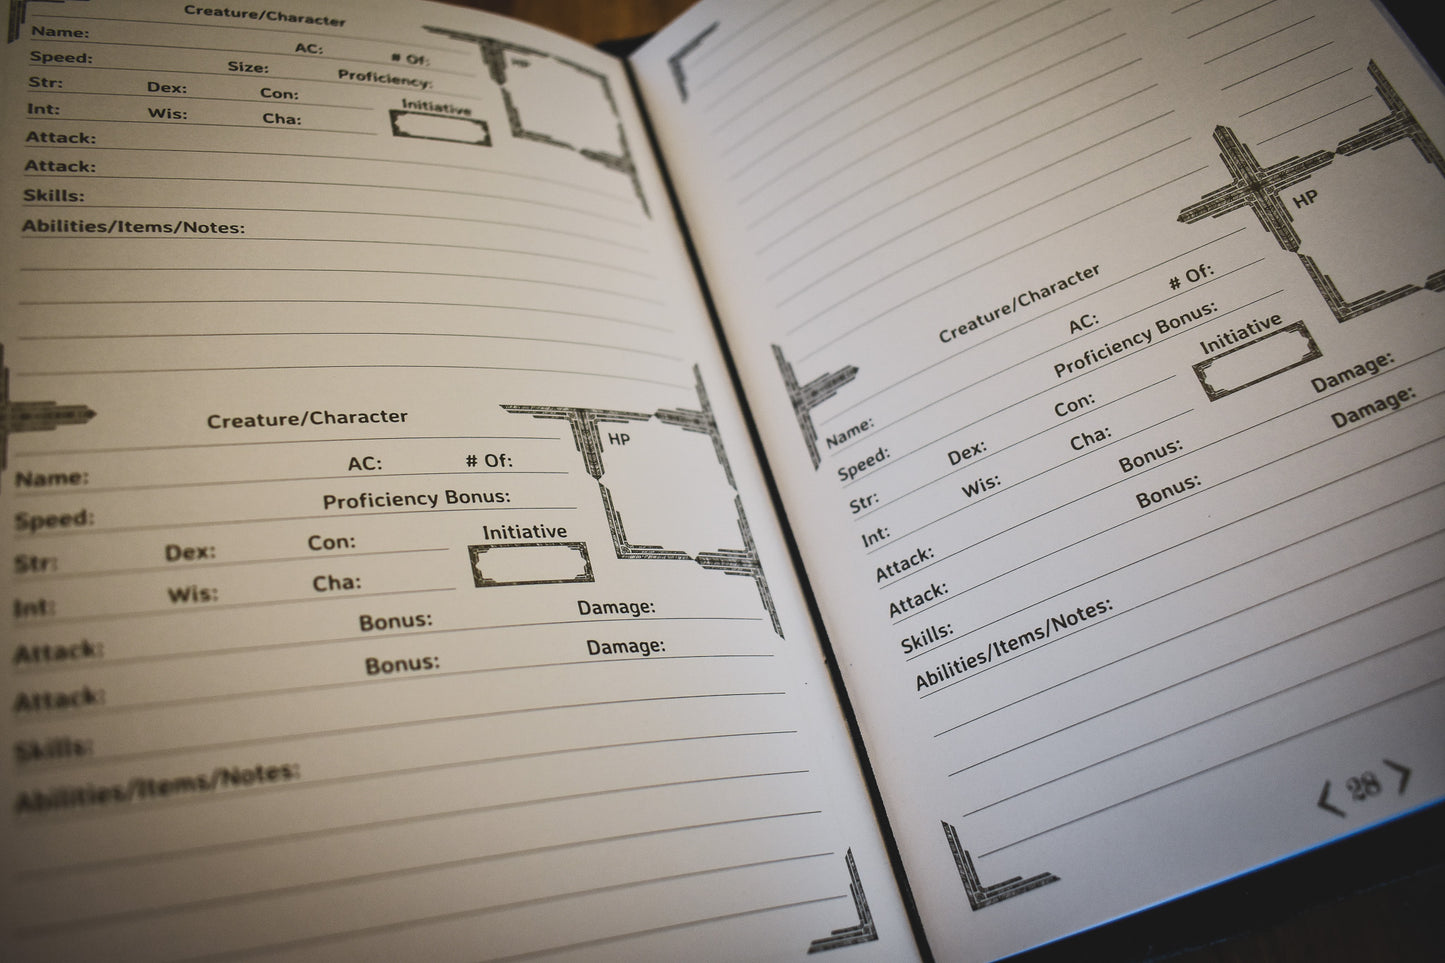 Creature/Character
Name: AC: # Of: HP
Speed: Size: Proficiency:
Str: Dex: Con: Initiative
Int: Wis: Cha:
Attack:
Attack:
Skills:
Abilities/Items/Notes:
Creature/Character
HP
Name: AC: # Of:
Speed: Proficiency Bonus:
Str: Dex: Con: Initiative
Int: Wis: Cha:
Attack: Bonus: Damage:
Attack: Bonus: Damage:
Skills:
Abilities/Items/Notes:
Creature/Character
HP
Name: AC: # Of:
Speed: Proficiency Bonus:
Str: Dex: Con: Initiative
Int: Wis: Cha:
Attack: Bonus: Damage:
Attack: Bonus: Damage:
Skills:
Abilities/Items/Notes:
28